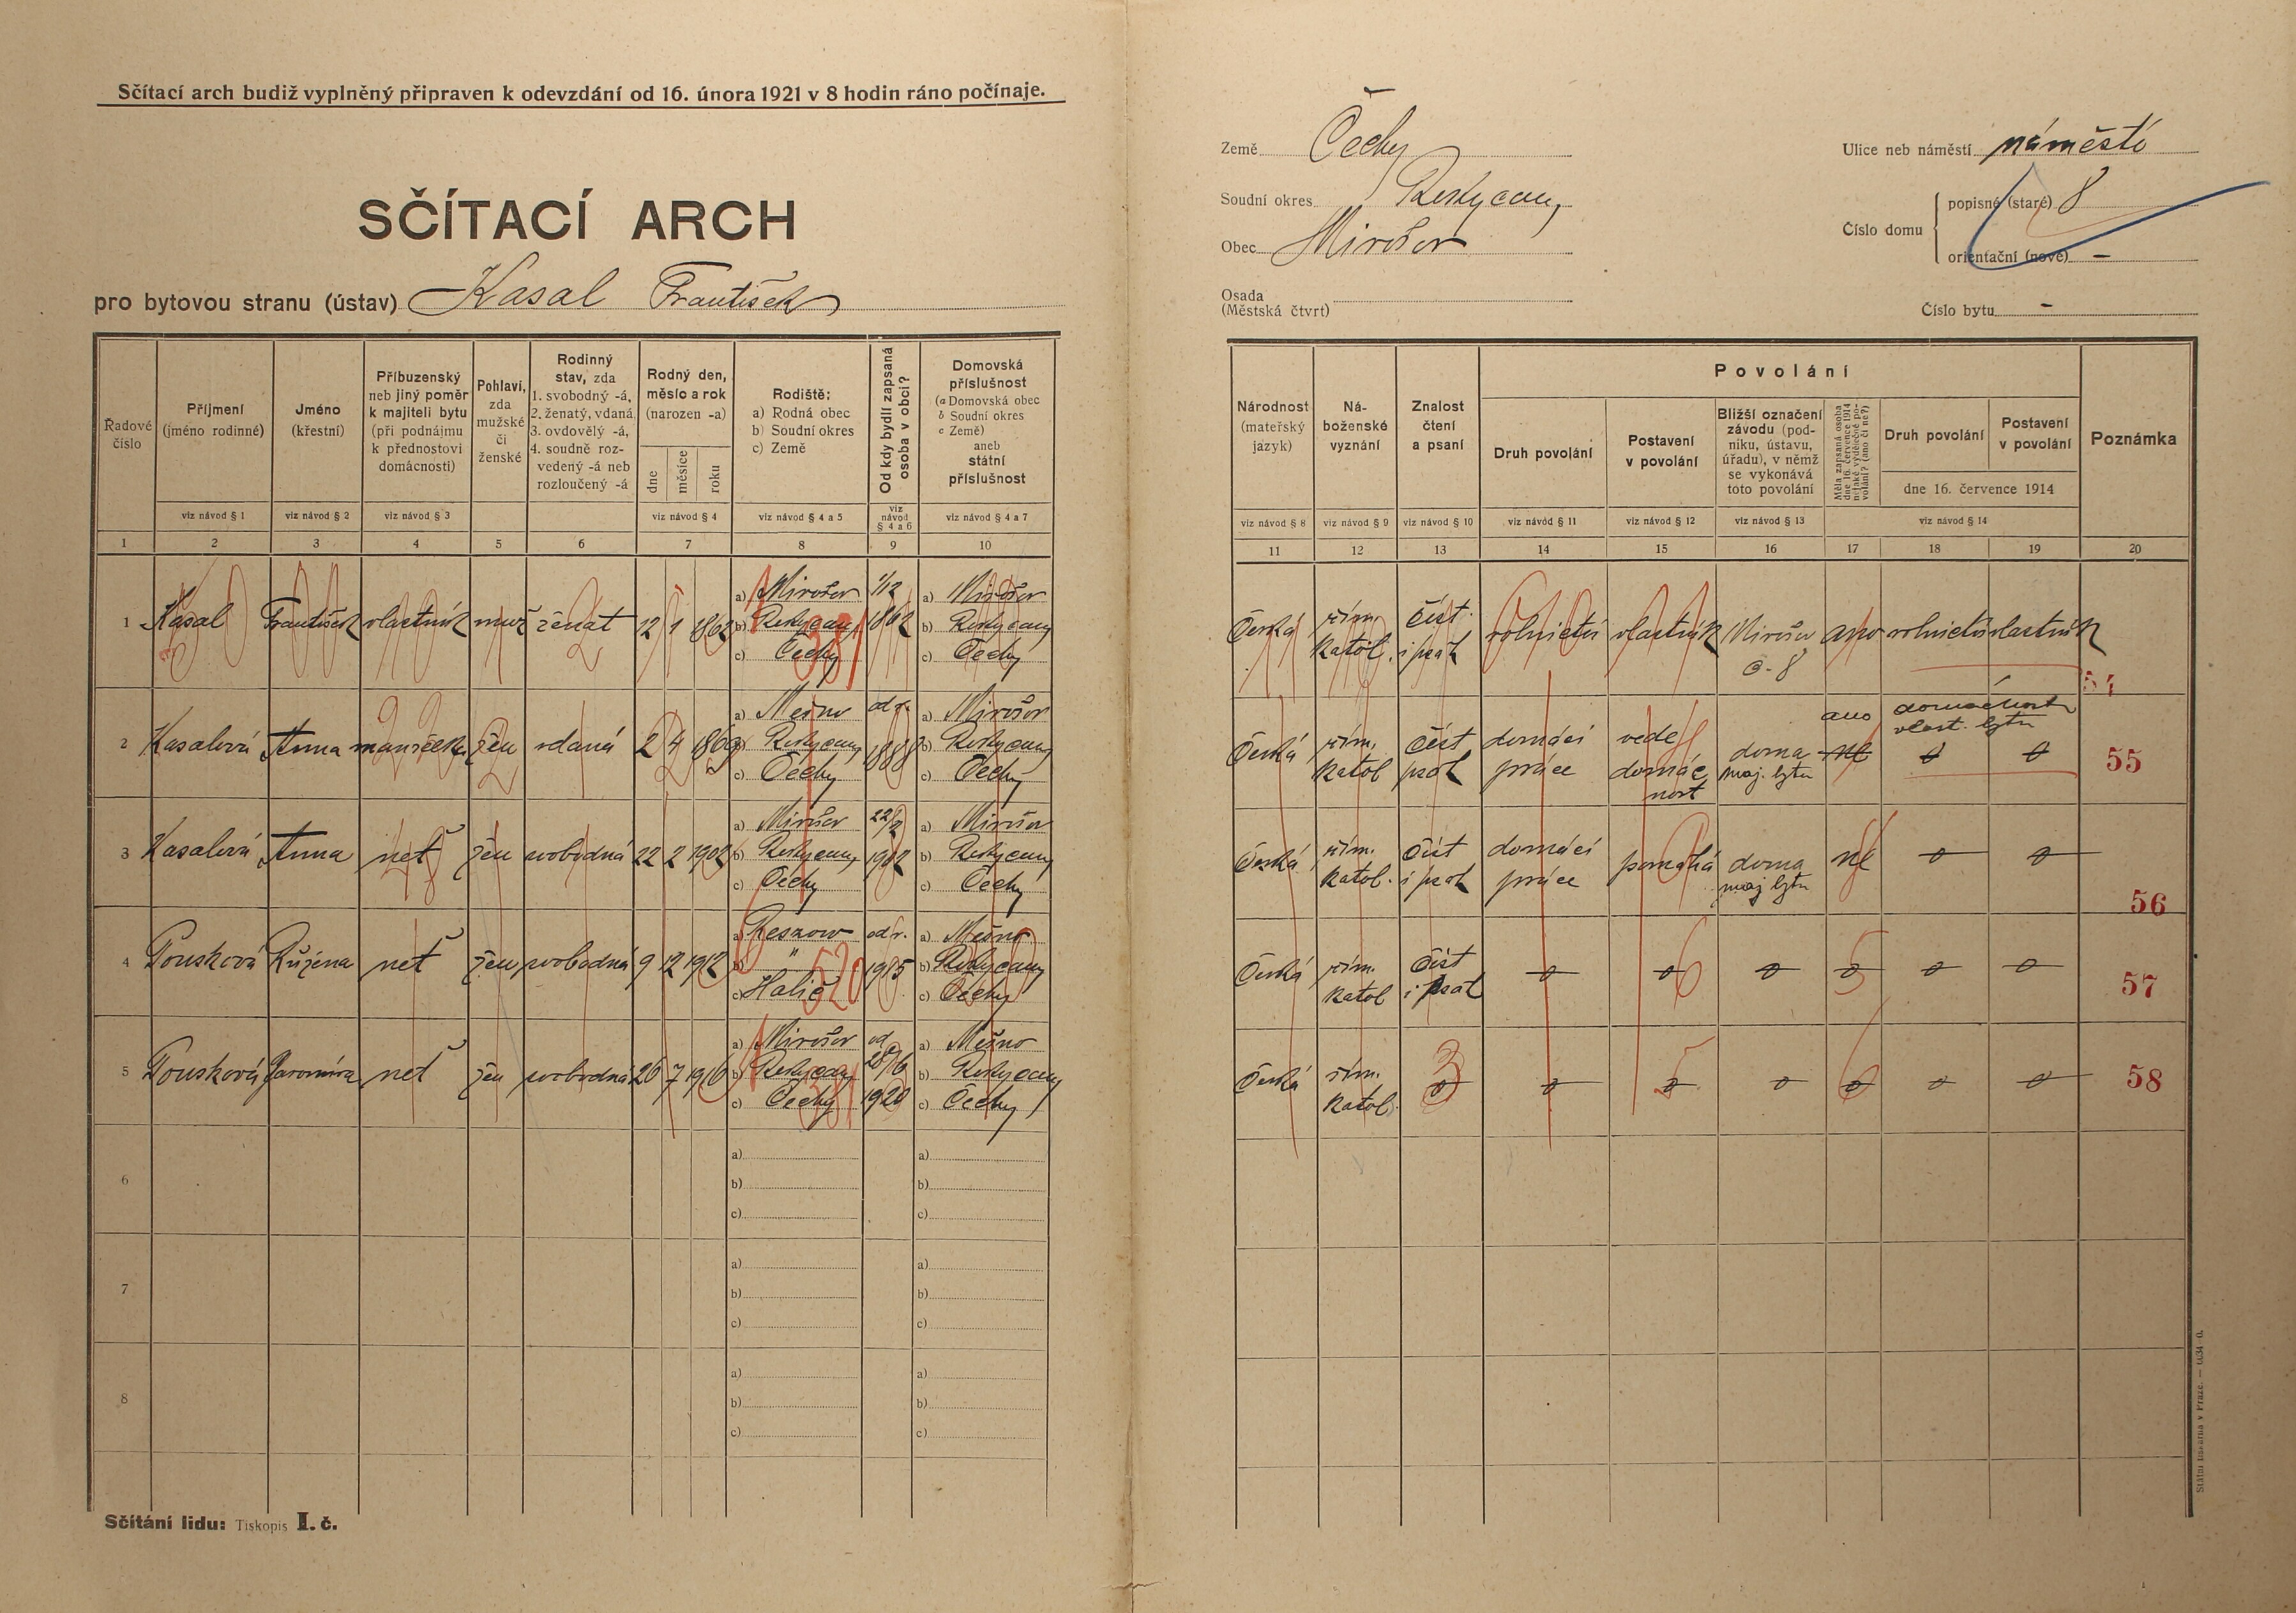 Sčítací arch budiž vyplněný připraven k odevzdání od 16. února 1921 v 8 hodin ráno počínaje.
SČÍTACÍ ARCH
pro bytovou stranu (ústav) Kasal František
Země Čechy
Soudní okres Rokycany
Obec Mirošov
Osada
(Městská čtvrt)
Ulice neb náměstí náměstí
Číslo domu
popisné (staré) 8
orientační (nové) -
Číslo bytu -
Řadové číslo
Příjmení (jméno rodinné)
Jméno (křestní)
Příbuzenský neb jiný poměr k majiteli bytu (při podnájmu k přednostovi domácnosti)
Pohlaví, zda mužské či ženské
Rodinný stav, zda 1. svobodný -á, 2. ženatý, vdaná 3. ovdovělý -á, 4. soudně rozvedený -á neb rozloučený -á
Rodný den, měsíc a rok (narozen -a)
dne měsíce roku
Rodiště:
a) Rodná obec
b) Soudní okres
c) Země
Od kdy bydlí zapsaná osoba v obci?
Domovská příslušnost
(a Domovská obec
b Soudní okres
c Země)
aneb
státní příslušnost
viz návod § 1 viz návod § 2 viz návod § 3 viz návod § 4 viz návod § 4 a 5 viz návod § 4 a 6 viz návod § 4 a 7
1 2 3 4 5 6 7 8 9 10
Národnost (mateřský jazyk)
Náboženské vyznání
Znalost čtení a psaní
Povolání
Druh povolání
Postavení v povolání
Bližší označení závodu (podniku, ústavu, úřadu), v němž se vykonává toto povolání
Měla zapsaná osoba dne 16. července 1914 nějaké výdělečné povolání? (ano či ne?)
Druh povolání
Postavení v povolání
dne 16. července 1914
Poznámka
viz návod § 8 viz návod § 9 viz návod § 10 viz návod § 11 viz návod § 12 viz návod § 13 viz návod § 14
11 12 13 14 15 16 17 18 19 20
1 Kasal František vlastník muž ženat 12 1 1862 a) Mirošov b) Rokycany c) Čechy 1/12 1862 a) Mirošov b) Rokycany c) Čechy
Česká řím. katol. číst i psát rolnictví vlastník Mirošov č. 8 ano rolnictví vlastník 54
2 Kasalová Anna manželka žen vdaná 2 4 1869 a) Mešno b) Rokycany c) Čechy od r. 1888 a) Mirošov b) Rokycany c) Čechy
Česká řím. katol číst psát domácí práce vede domácnost doma maj. bytu ne ano domácnost vlast. bytu 55
3 Kasalová Anna neť žen svobodná 22 2 1902 a) Mirošov b) Rokycany c) Čechy 22/2 1902 a) Mirošov b) Rokycany c) Čechy
Česká řím. katol. číst i psát domácí práce pomáhá doma maj bytu ne 56
4 Pousková Růžena neť žen svobodná 9 12 1912 a) Reszow b) " c) Halič od r. 1915 a) Mešno b) Rokycany c) Čechy
Česká řím. katol číst i psát 57
5 Pousková Jaromíra neť žen svobodná 26 7 1916 a) Mirošov b) Rokycany c) Čechy od 1920 a) Mešno b) Rokycany c) Čechy
Česká řím. katol. 58
6 a) b) c) a) b) c)
7 a) b) c) a) b) c)
8 a) b) c) a) b) c)
Sčítání lidu: Tiskopis I. č.
Státní tiskárna v Praze.